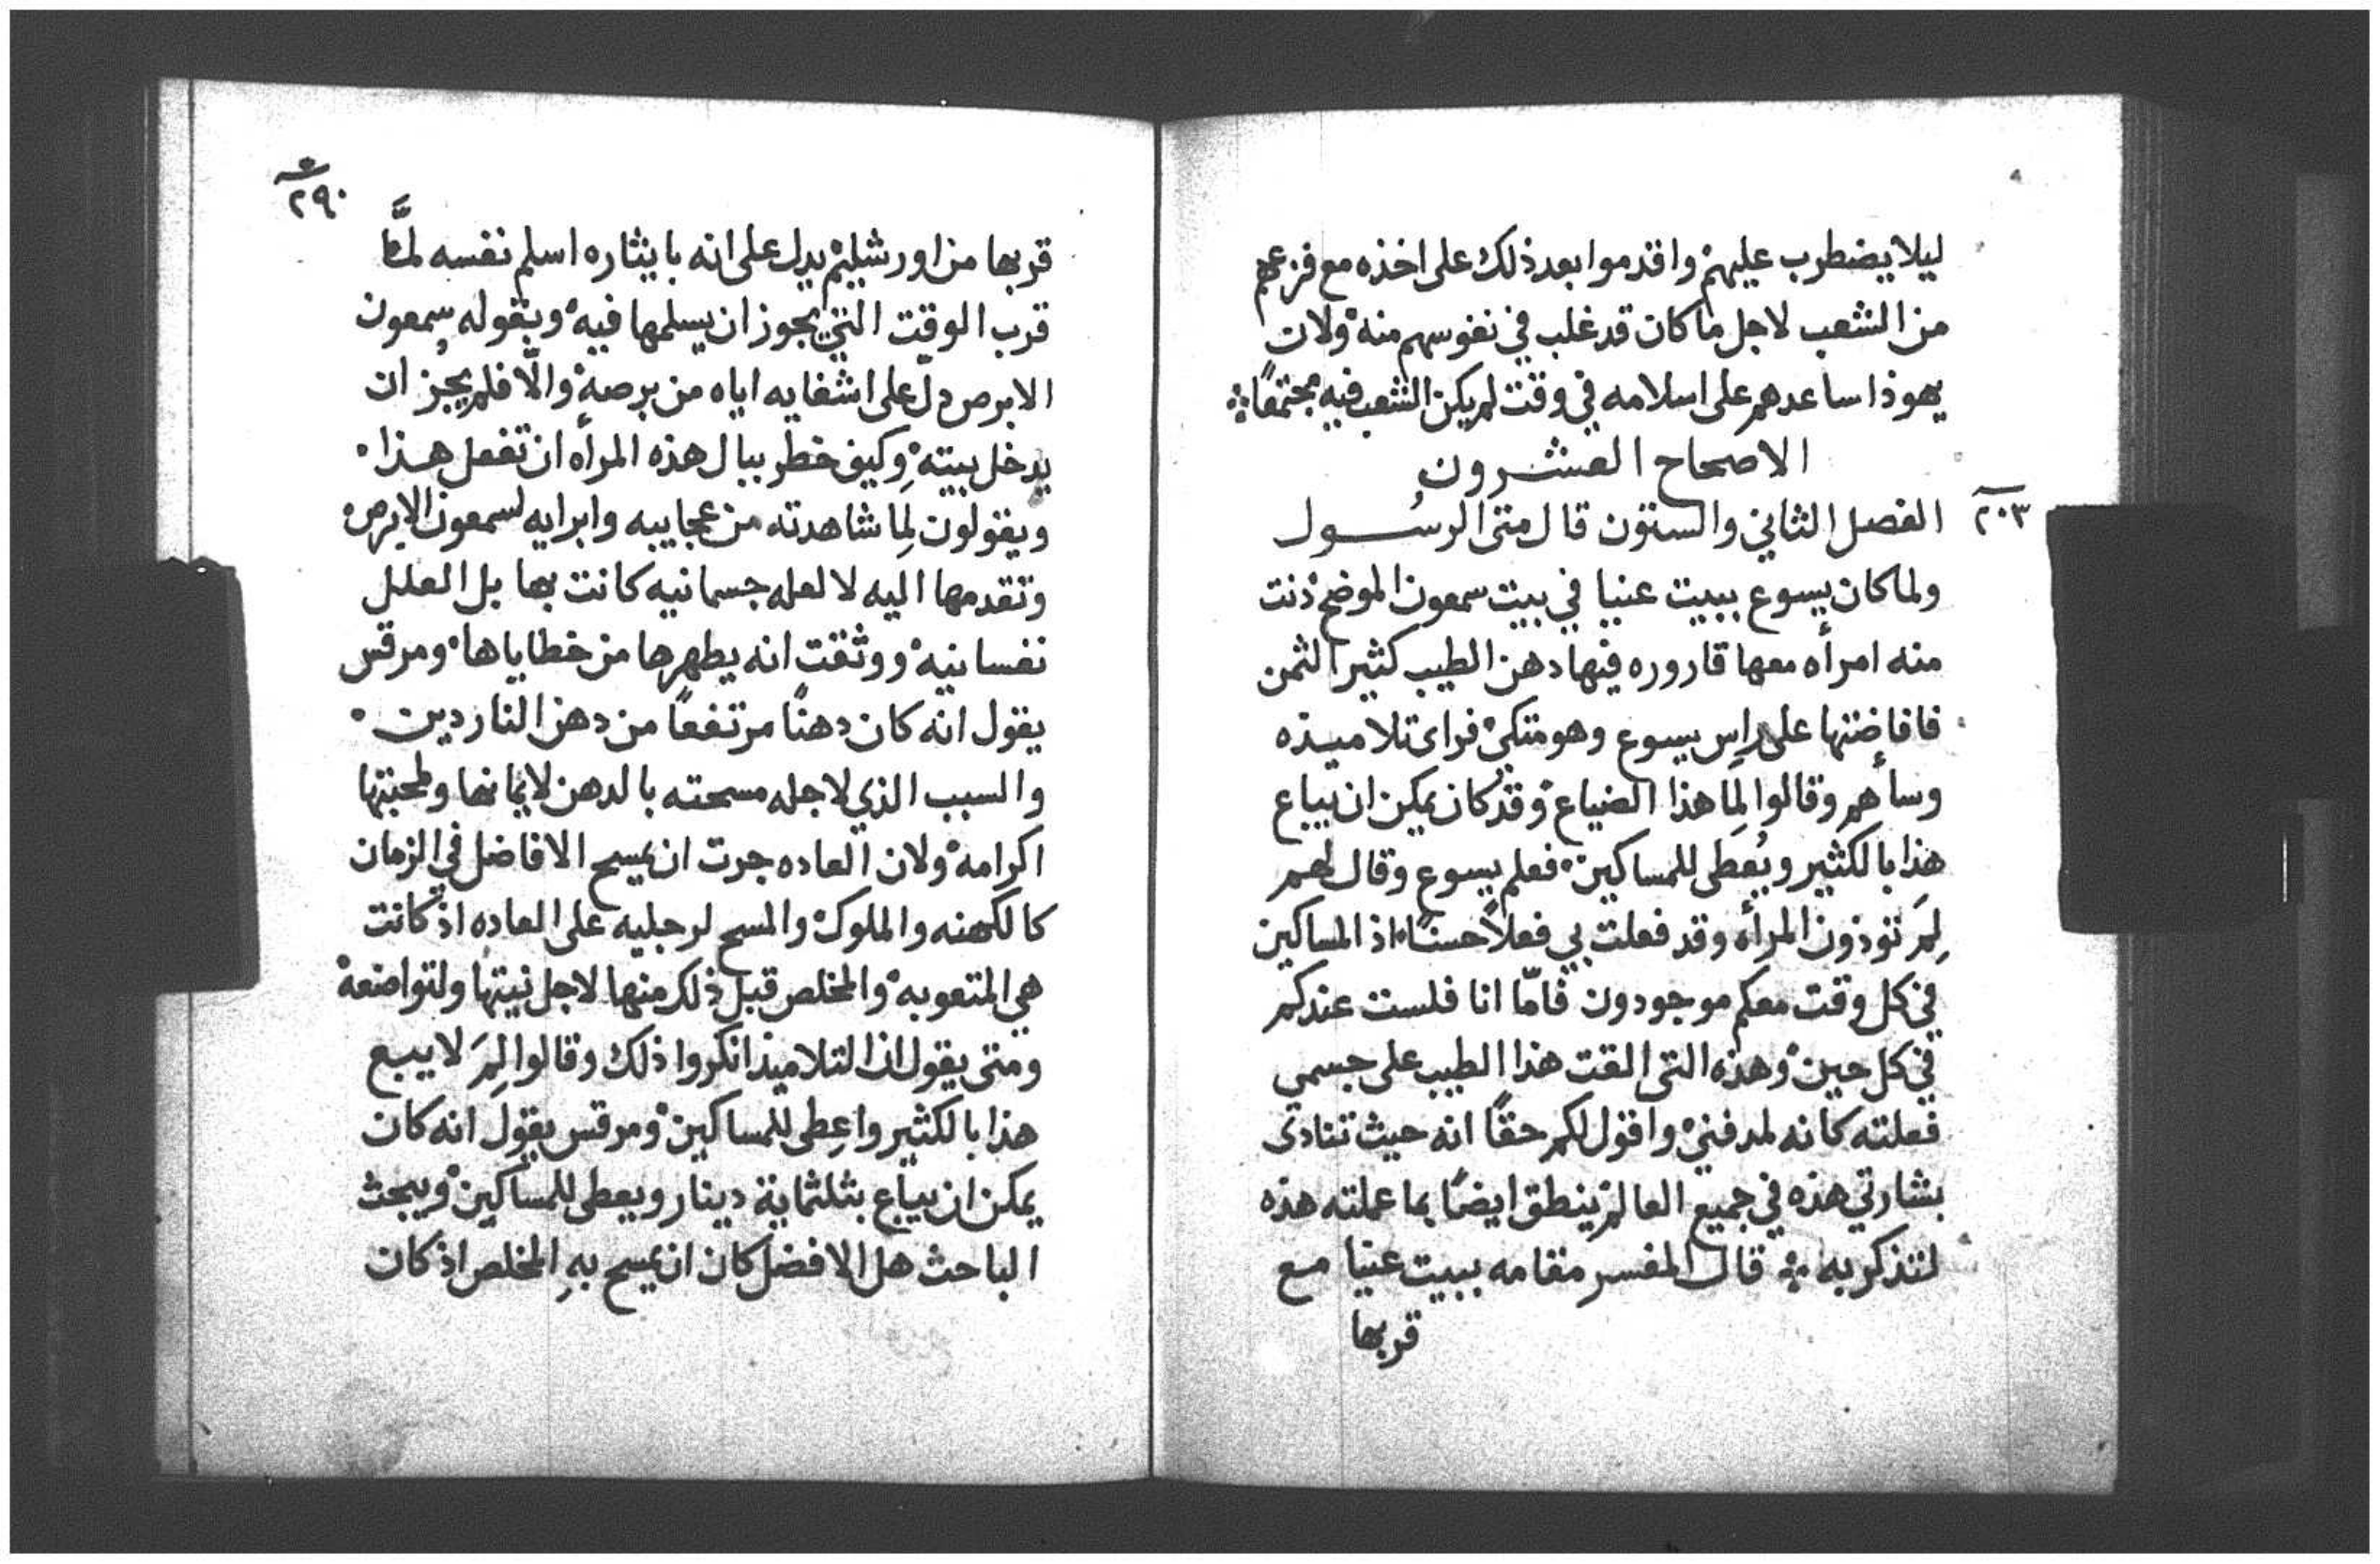 ليلا يضطرب عليهم واقدموا بعد ذلك على اخذه مع فزعهم
من الشعب لاجل ما كان قد غلب في نفوسهم منه ولان
يهوذا ساعدهم على اسلامه في وقت لم يكن الشعب فيه مجتمعًا
الاصحاح العشرون
٢٠٣
الفصل الثاني والستون قال متى الرسُول
ولما كان يسوع ببيت عنيا في بيت سمعون الموضح دنت
منه امرأه معها قاروره فيها دهن الطيب كثير الثمن
فافاضتها على راس يسوع وهو متكئ فراى تلاميذه
وسأهم وقالوا لِمَا هذا الضياع وقد كان يمكن ان يباع
هذا بالكثير ويُعطى للمساكين فعلم يسوع وقال لهم
لِمَ توذون المرأه وقد فعلت بي فعلاً حسنًا اذ المساكين
في كل وقت معكم موجودون فامّا انا فلست عندكم
في كل حين وهذه التى القت هذا الطيب على جسمي
فعلته كانه لمدفني واقول لكم حقًا انه حيث تنادى
بشارتي هذه في جميع العالم ينطق ايضًا بما عملته هذه
لتذكر به قال المفسر مقامه ببيت عنيا مع
قربها
٢٩٠
قربها من اورشليم يدل على انه بايثاره اسلم نفسه لمَّا
قرب الوقت التي يجوز ان يسلمها فيه وبقوله سمعون
الابرص دلّ على اشفايه اياه من برصه والّا فلم يجُز ان
يدخل بيته وكيف خطر ببال هذه المرأه ان تفعل هذا
ويقولون لِمَا شاهدته من عجايبه وابرايه لسمعون الابرص
وتقدمها اليه لا لعله جسمانيه كانت بها بل العلل
نفسانيه ووثقت انه يطهرها من خطاياها ومرقس
يقول انه كان دهنًا مرتفعًا من دهن الناردين
والسبب الذي لاجله مسحته بالدهن لايمانها ولمحبتها
اكرامه ولان العاده جرت ان يمسح الافاضل في الزمان
كالكهنه والملوك والمسح لرجليه على العاده اذ كانت
هي المتعوبه والمخلص قبل ذلك منها لاجل نيتها ولتواضعه
ومتى يقول ان التلاميذ انكروا ذلك وقالوا لِمَ لا يبيع
هذا بالكثير واعِطى للمساكين ومرقس يقول انه كان
يمكن ان يباع بثلثماية دينار ويعطى للمساكين ويبحث
الباحث هل الافضل كان ان يمسح بهِ المخلص اذ كان